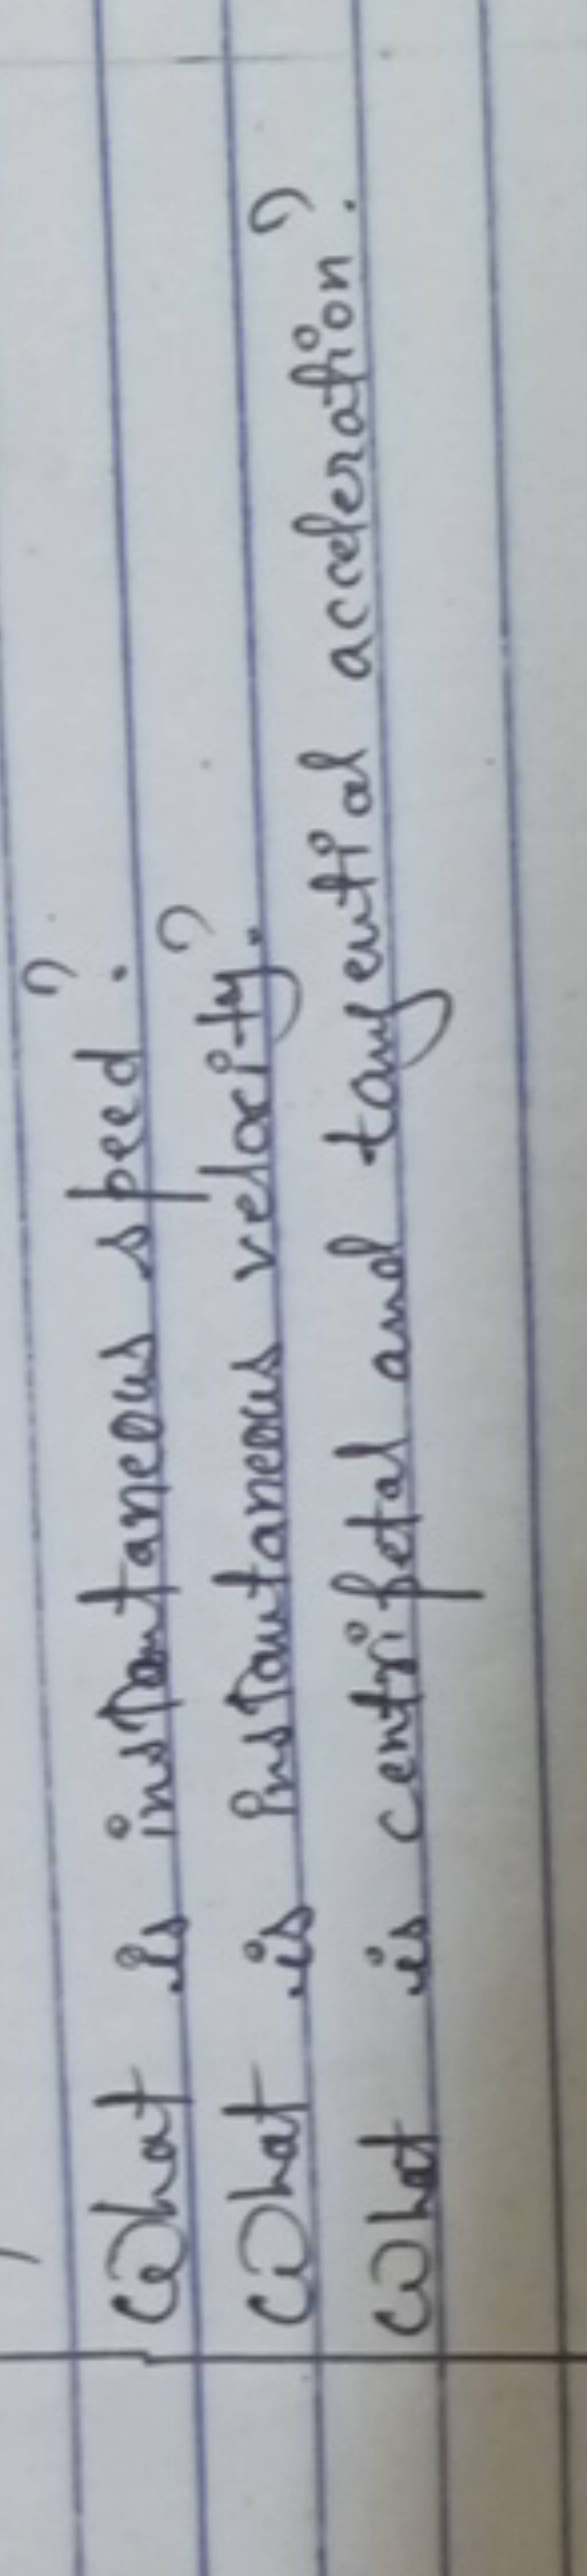 What is instantaneous speed?
What is instantaneous velocity?
What is centripetal and tangential acceleration?